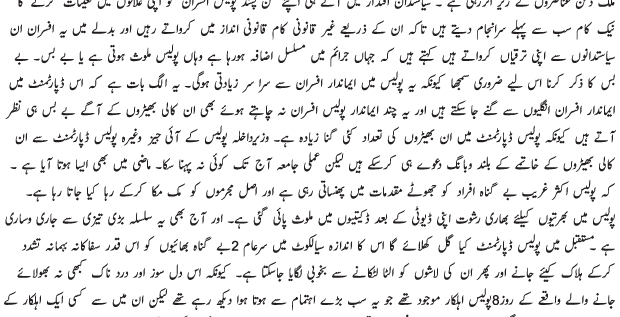 ملک دشمن عناصروں کے زیر اثر رہی ہے ۔ سیاستدان اقتدار میں آتے ہی اپنے من پسند پولیس افسران کو اپنی علاقوں میں تعینات کرنے کا
نیک کام سب سے پہلے سرانجام دیتے ہیں تاکہ ان کے ذریعے غیر قانونی کام قانونی انداز میں کرواتے رہیں اور بدلے میں یہ افسران ان
سیاستدانوں سے اپنی ترقیاں کرواتے ہیں کہتے ہیں کہ جہاں جرائم میں مسلسل اضافہ ہورہا ہے وہاں پولیس ملوث ہوتی ہے یا بے بس۔ بے
بس کا ذکر کرنا اس لیے ضروری سمجھا کیونکہ یہ پولیس میں ایماندار افسران سے سرا سر زیادتی ہوگی۔ یہ الگ بات ہے کہ اس ڈپارٹمنٹ میں
ایماندار افسران انگلیوں سے گنے جا سکتے ہیں اور یہ چند ایماندار پولیس افسران نہ چاہتے ہوئے بھی ان کالی بھیڑوں کے آگے بے بس ہی نظر
آتے ہیں کیونکہ پولیس ڈپارٹمنٹ میں ان بھیڑوں کی تعداد کئی گنا زیادہ ہے۔ وزیرداخلہ پولیس کے آئی جیز وغیرہ پولیس ڈپارٹمنٹ سے ان
کالی بھیڑوں کے خاتمے کے بلند وبانگ دعوے ہی کرسکے ہیں لیکن عملی جامعہ آج تک کوئی نہ پہنا سکا۔ ماضی میں بھی ایسا ہوتا آیا ہے ۔
کہ پولیس اکثر غریب بے گناہ افراد کو جھوٹے مقدمات میں پھنساتی رہی ہے اور اصل مجرموں کو مک مکا کرکے رہا کیا جاتا رہا ہے۔
پولیس میں بھرتیوں کیلئے بھاری رشوت اپنی ڈیوٹی کے بعد ڈکیتیوں میں ملوث پائی گئی ہے۔ اور آج بھی یہ سلسلہ بڑی تیزی سے جاری وساری
ہے ۔مستقبل میں پولیس ڈپارٹمنٹ کیا گل کھلائے گا اس کا اندازہ سیالکوٹ میں سرعام 2بے گناہ بھائیوں کو اس قدر سفاکانہ بہمانہ تشدد
کرکے ہلاک کیئے جانے اور پھر ان کی لاشوں کو الٹا لٹکانے سے بخوبی لگایا جاسکتا ہے۔ کیونکہ اس دل سوز اور درد ناک کبھی نہ بھولائے
جانے والے واقعے کے روز8پولیس اہلکار موجود تھے جو یہ سب بڑے اہتمام سے ہوتا ہوا دیکھ رہے تھے لیکن ان میں سے کسی ایک اہلکار کے